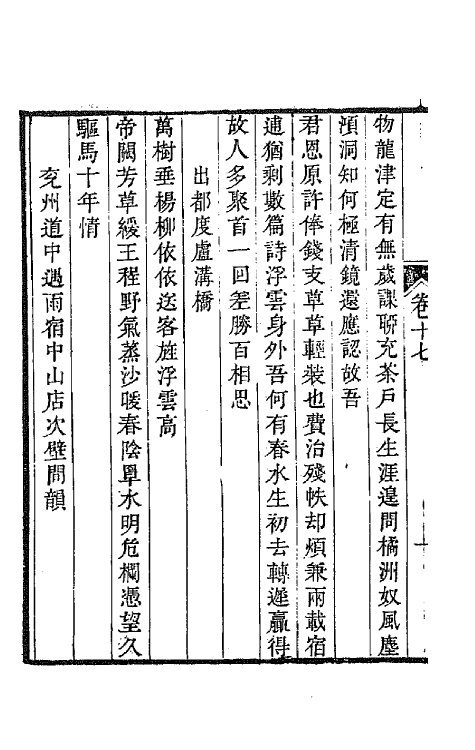 卷十七
物龍津定有無歲課聊充茶戶長生涯遑問橘洲奴風塵
澒洞知何極清鏡還應認故吾
君恩原許俸錢支草草輕裝也費治殘帙却煩兼兩載宿
逋猶剩數篇詩浮雲身外吾何有春水生初去轉遲贏得
故人多聚首一回差勝百相思
出都度盧溝橋
萬樹垂楊柳依依送客旌浮雲高
帝闕芳草緩王程野氣蒸沙暖春陰單水明危欄憑望久
驅馬十年情
兗州道中遇雨宿中山店次壁間韻